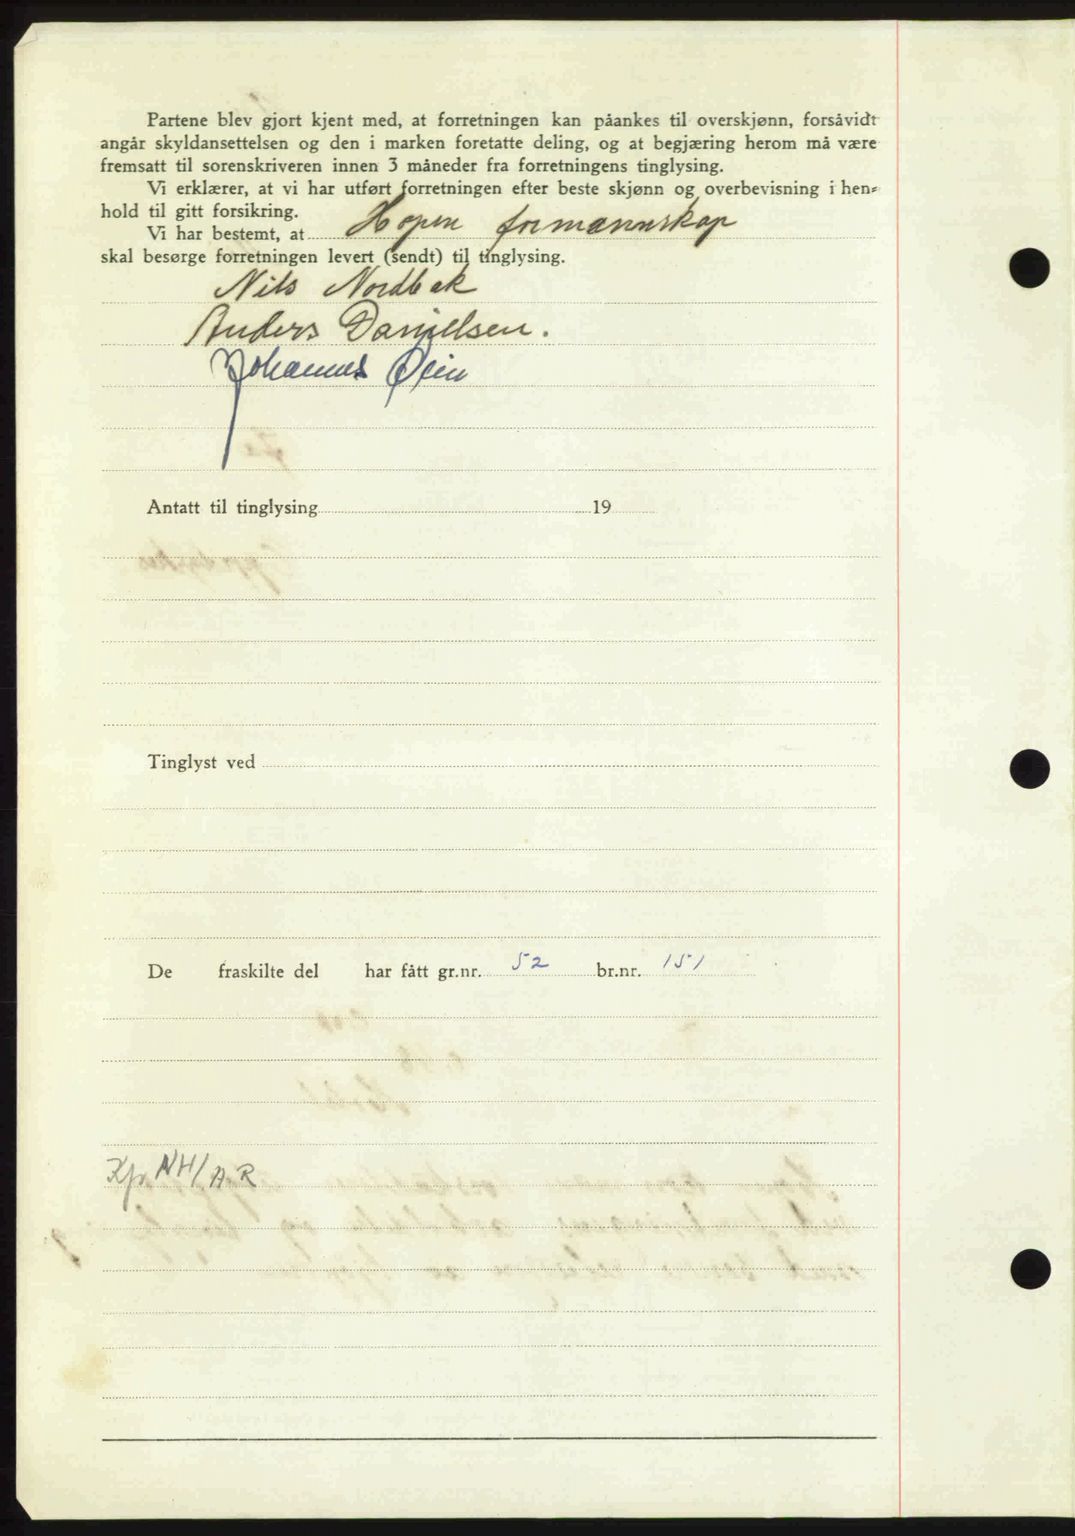 Partene blev gjort kjent med, at forretningen kan påankes til overskjønn, forsåvidt
angår skyldansettelsen og den i marken foretatte deling, og at begjæring herom må være
fremsatt til sorenskriveren innen 3 måneder fra forretningens tinglysing.
Vi erklærer, at vi har utført forretningen efter beste skjønn og overbevisning i hen-
hold til gitt forsikring.
Vi har bestemt, at Hopen formannskap
skal besørge forretningen levert (sendt) til tinglysing.
Nils Nordbak
Anders Danielsen.
Johannes Øien
Antatt til tinglysing 19
Tinglyst ved
De fraskilte del har fått gr.nr. 52 br.nr. 151
NH/A.R